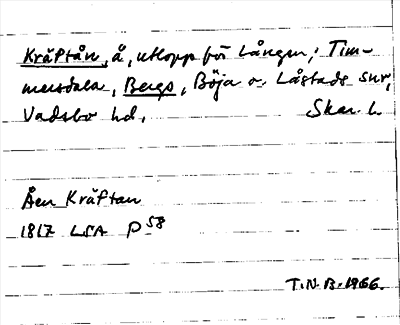 Kräftån, å, utlopp för Lången; Tim-
mersdala, Bergs, Böja o. Låstads snr,
Vadsbo hd. Skar. l.
Åen Kräftan
1817 LSA P 58
T.N.B. 1966.